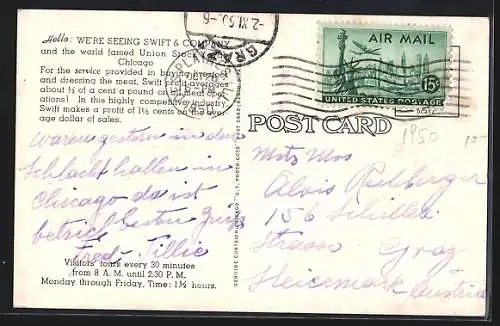 Hello: WE'RE SEEING SWIFT & COMPANY
and the world famed Union Stock
Chicago
For the service provided in buying
and dressing the meat, Swift profit averages
about ⅓ of a cent a pound
In this highly competitive industry
Swift makes a profit of 1½ cents on the aver-
age dollar of sales.
waren gestern in den
Schlachthallen in
Chicago da ist
betrieb besten Gruß
Fred - Tillie
Visitors' tours every 30 minutes
from 8 A. M. until 2:30 P. M.
Monday through Friday, Time: 1½ hours.
GENUINE CURTEICH-CHICAGO
-2. XI. 50 - 6
GRAZ
AIR MAIL
15¢
UNITED STATES POSTAGE
POST CARD
1950
Alois
156 Schiller
Strasse Graz
Steiermark Austria